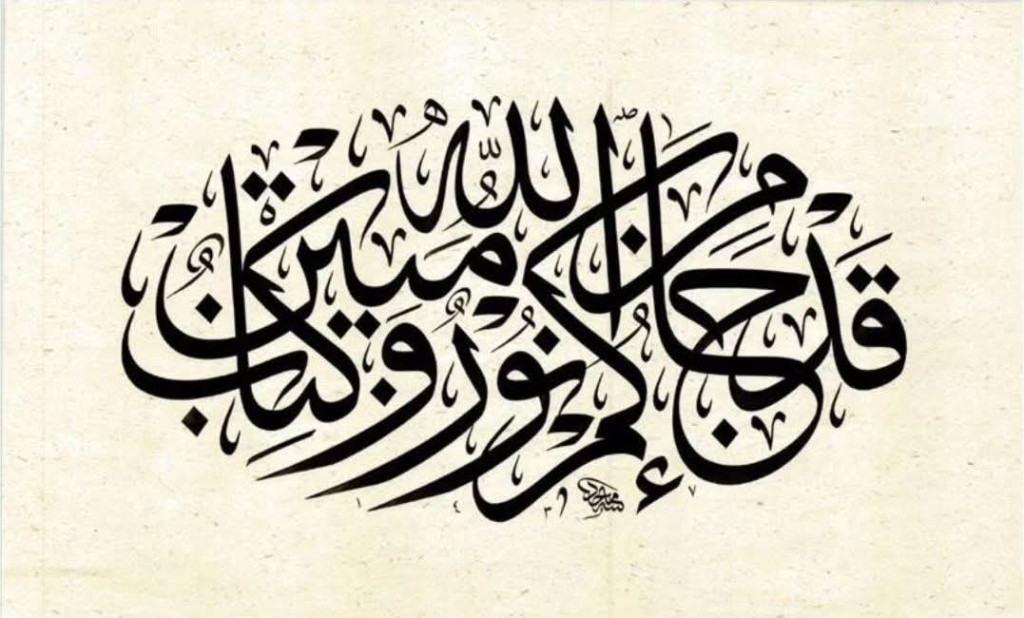 قَدْ جَاءَكُمْ مِنَ اللَّهِ نُورٌ وَكِتَابٌ مُبِينٌ
١٤٣٧